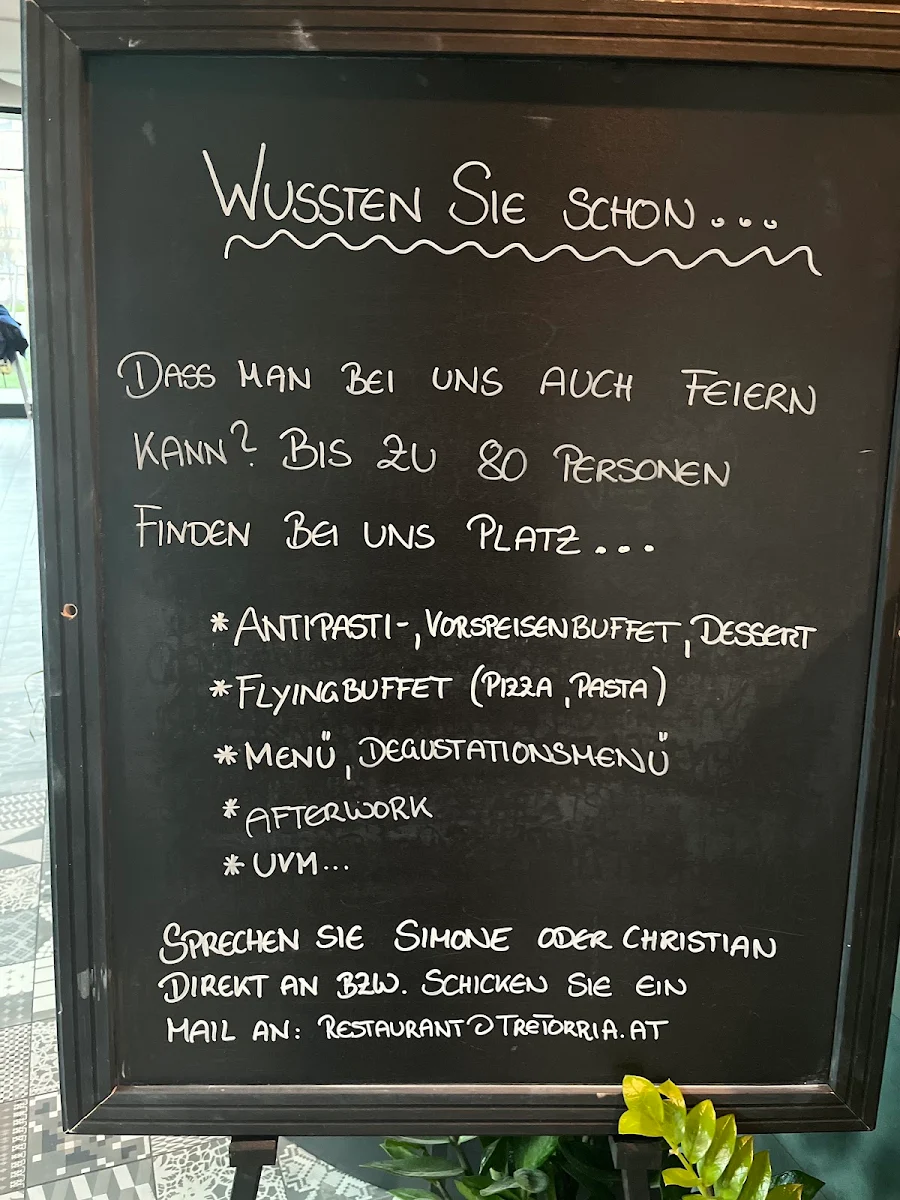 WUSSTEN SIE SCHON...
DASS MAN BEI UNS AUCH FEIERN
KANN? BIS ZU 80 PERSONEN
FINDEN BEI UNS PLATZ...
*ANTIPASTI-, VORSPEISENBUFFET, DESSERT
*FLYINGBUFFET (PIZZA, PASTA)
*MENÜ, DEGUSTATIONSMENÜ
*AFTERWORK
*UVM...
SPRECHEN SIE SIMONE ODER CHRISTIAN
DIREKT AN BZW. SCHICKEN SIE EIN
MAIL AN: RESTAURANT@TRETORRIA.AT